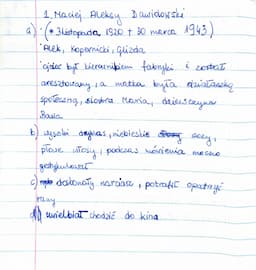 1. Maciej Aleksy Dawidowski
a) (* 3 listopada 1920 + 30 marca 1943)
Alek, Kopernicki, Glizda
ojciec był kierownikiem fabryki i został
aresztowany, a matka była działaczką
społeczną, siostra Maria, dziewczyna
Basia
b) wysoki, niebieskie oczy,
płowe włosy, podczas mówienia mocno
gestykulował
c) doskonały narciarz, potrafił opatrzyć
rany
d) uwielbiał chodzić do kina